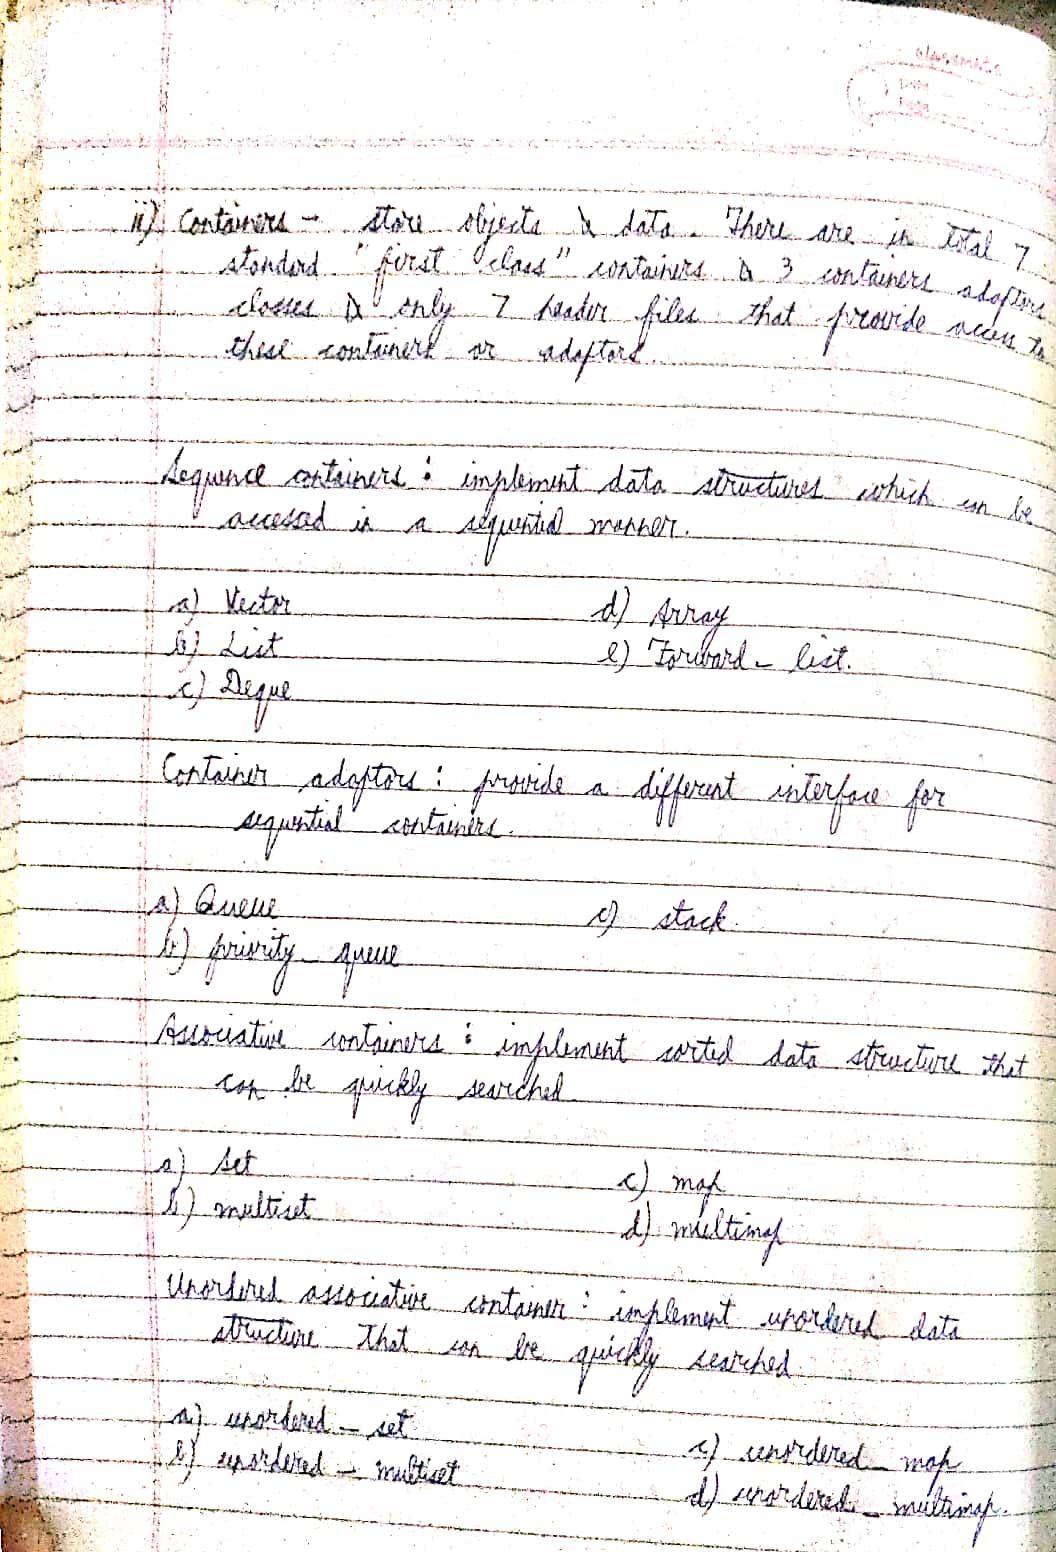 ii) Containers - store objects & data. There are in total 7
standard "first class" containers & 3 containers adaptors
classes & only 7 header files that provide access to
these containers or adaptors.
Sequence containers : implement data structures which can be
accessed in a sequential manner.
a) Vector
b) List
c) Deque
d) Array
e) Forward_list.
Container adaptors : provide a different interface for
sequential containers.
a) Queue
b) priority_queue
c) stack.
Associative containers : implement sorted data structure that
can be quickly searched
a) set
b) multiset
c) map
d) multimap
Unordered associative container : implement unordered data
structure that can be quickly searched
a) unordered_set
b) unordered_multiset
c) unordered_map
d) unordered_multimap.